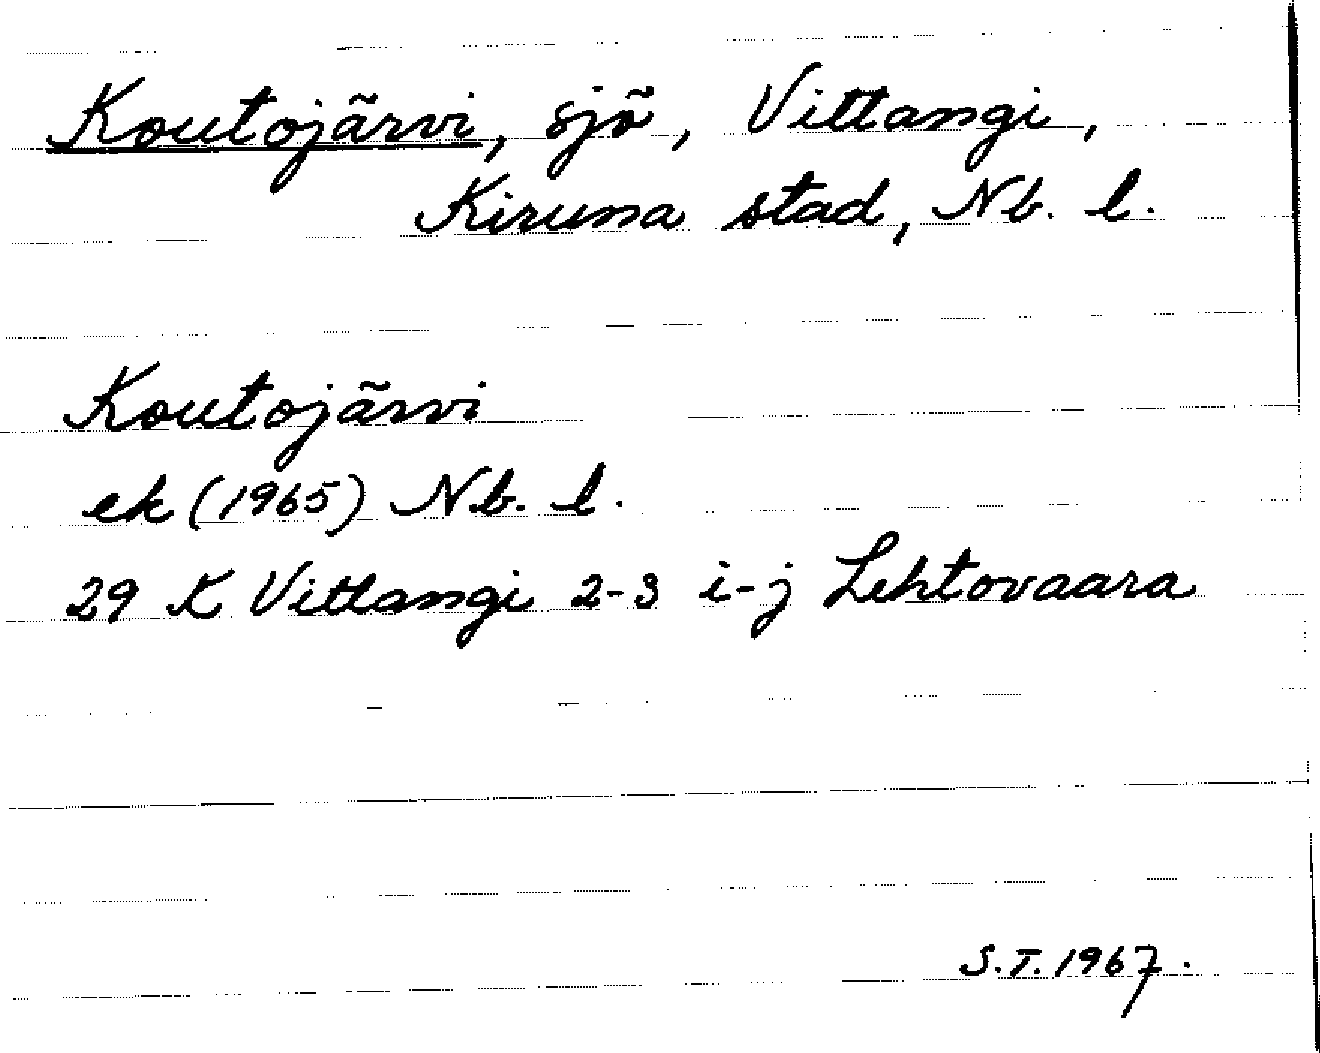 Koutojärvi, sjö, Vittangi,
Kiruna stad, Nb. l.
Koutojärvi
ek (1965) Nb. l.
29 K Vittangi 2-3 i-j Lehtovaara
S.T. 1967.